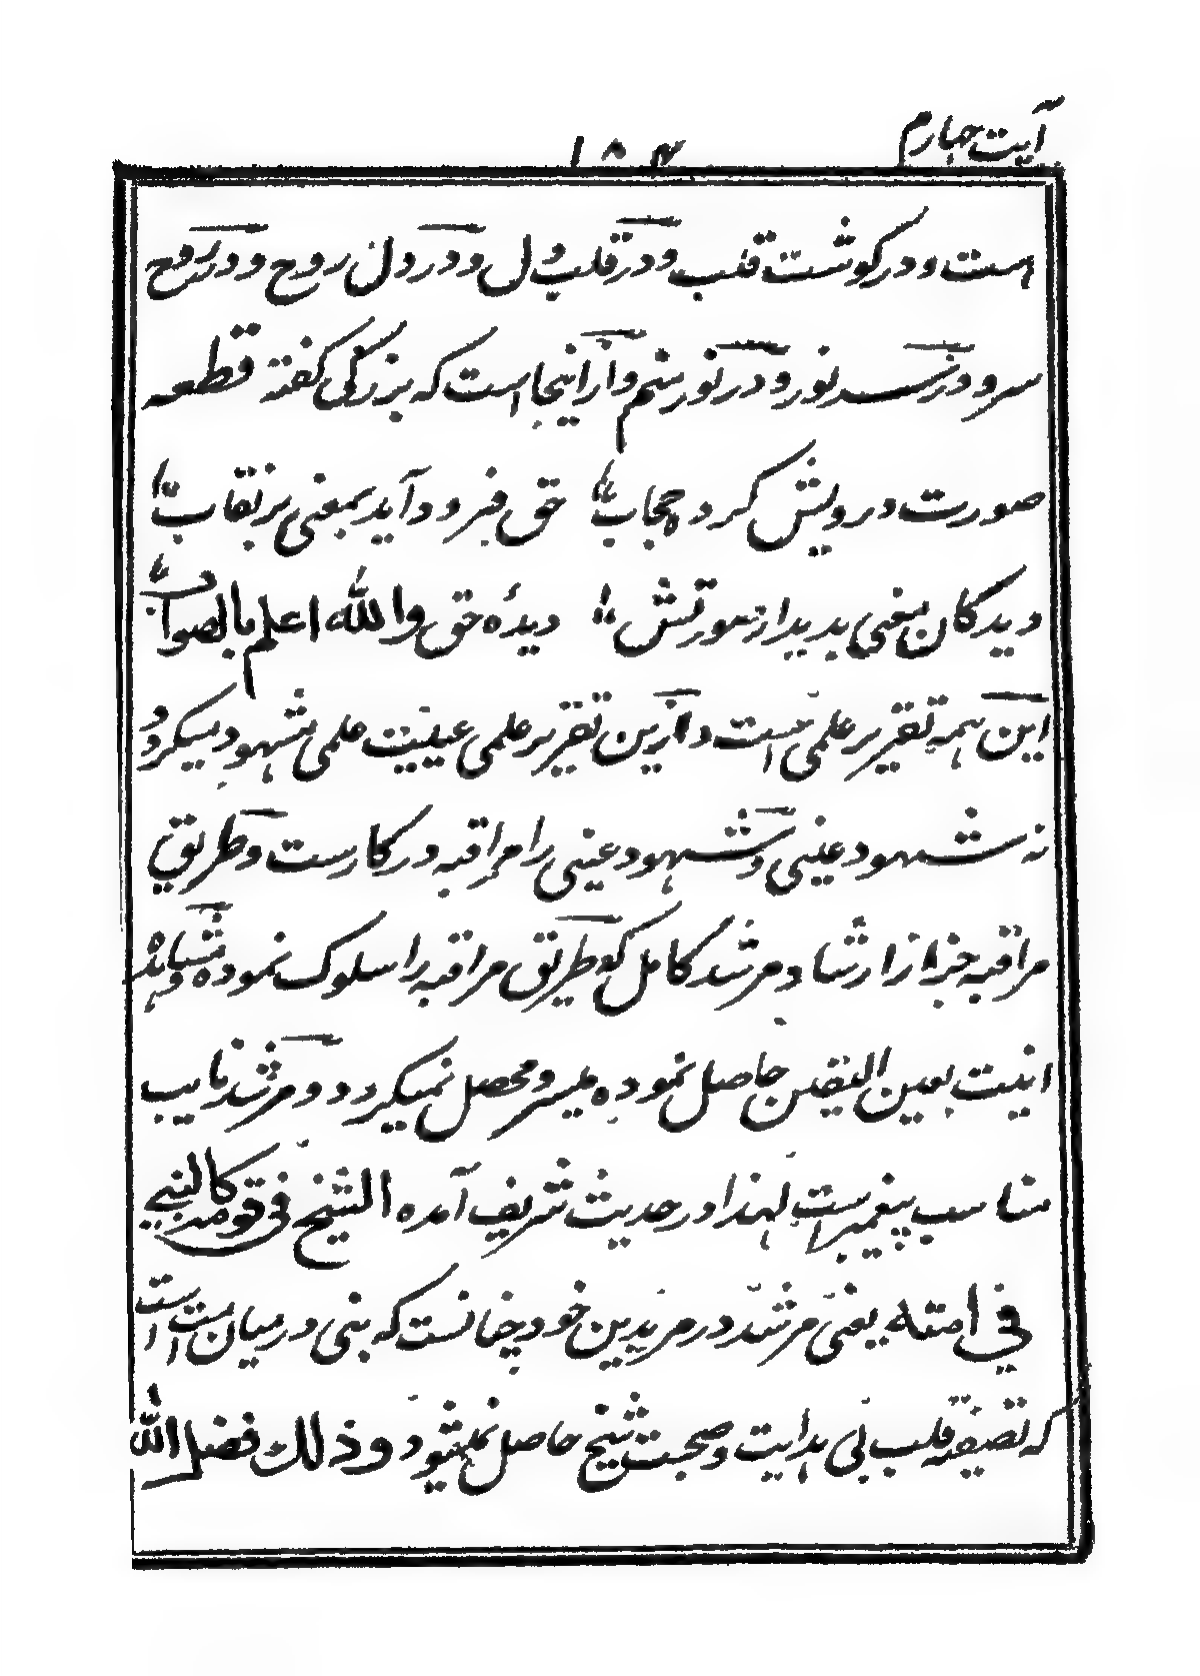 آیت چهارم
۱۸۴
است و در گوشت قلب و در قلب دل و در دل روح و در روح
سر و در سر نور و در نور منم و از اینجاست که بزرگی گفته قطعه
صورت درویش کرده حجاب حق فرود آید بمعنی بر نقاب
دیدگان معنی بدیدار صورتش دیدهٔ حق والله اعلم بالصواب
این همه تقریر علمی است و ازین تقریر علمی عینیت علمی مشهود میگردد
نه شهود عینی و شهود عینی را مراقبه درکارست و طریق
مراقبه جز از ارشاد مرشد کامل که طریق مراقبه را سلوک نموده و مشاهده
انیت بعین الیقین حاصل نموده میسر و محصل نمیگردد و مرشد نایب
مناسب پیغمبرست لهذا در حدیث شریف آمده الشیخ فی قومه کالنبی
فی امته یعنی مرشد در مریدین خود چنانست که نبی در میان امت است
که تصفیه قلب بی هدایت و صحبت شیخ حاصل نمیشود وذلك فضل الله